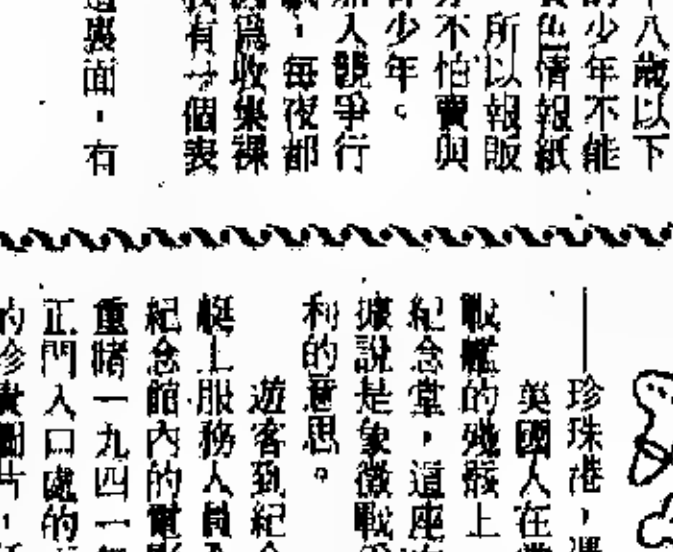 八歲以下
少年不能
色情報紙
所以報販
不怕賣與
少年。
入競爭行
，每夜都
爲收集裸
有廿個裝
裏面，有
——珍珠港，
英國人在
戰艦的殘骸上
紀念堂，這座
據說是象徵戰
利的意思。
遊客到紀
艇上服務人員
紀念館內的電影
重睹一九四一
正門入口處的
的珍貴圖片，